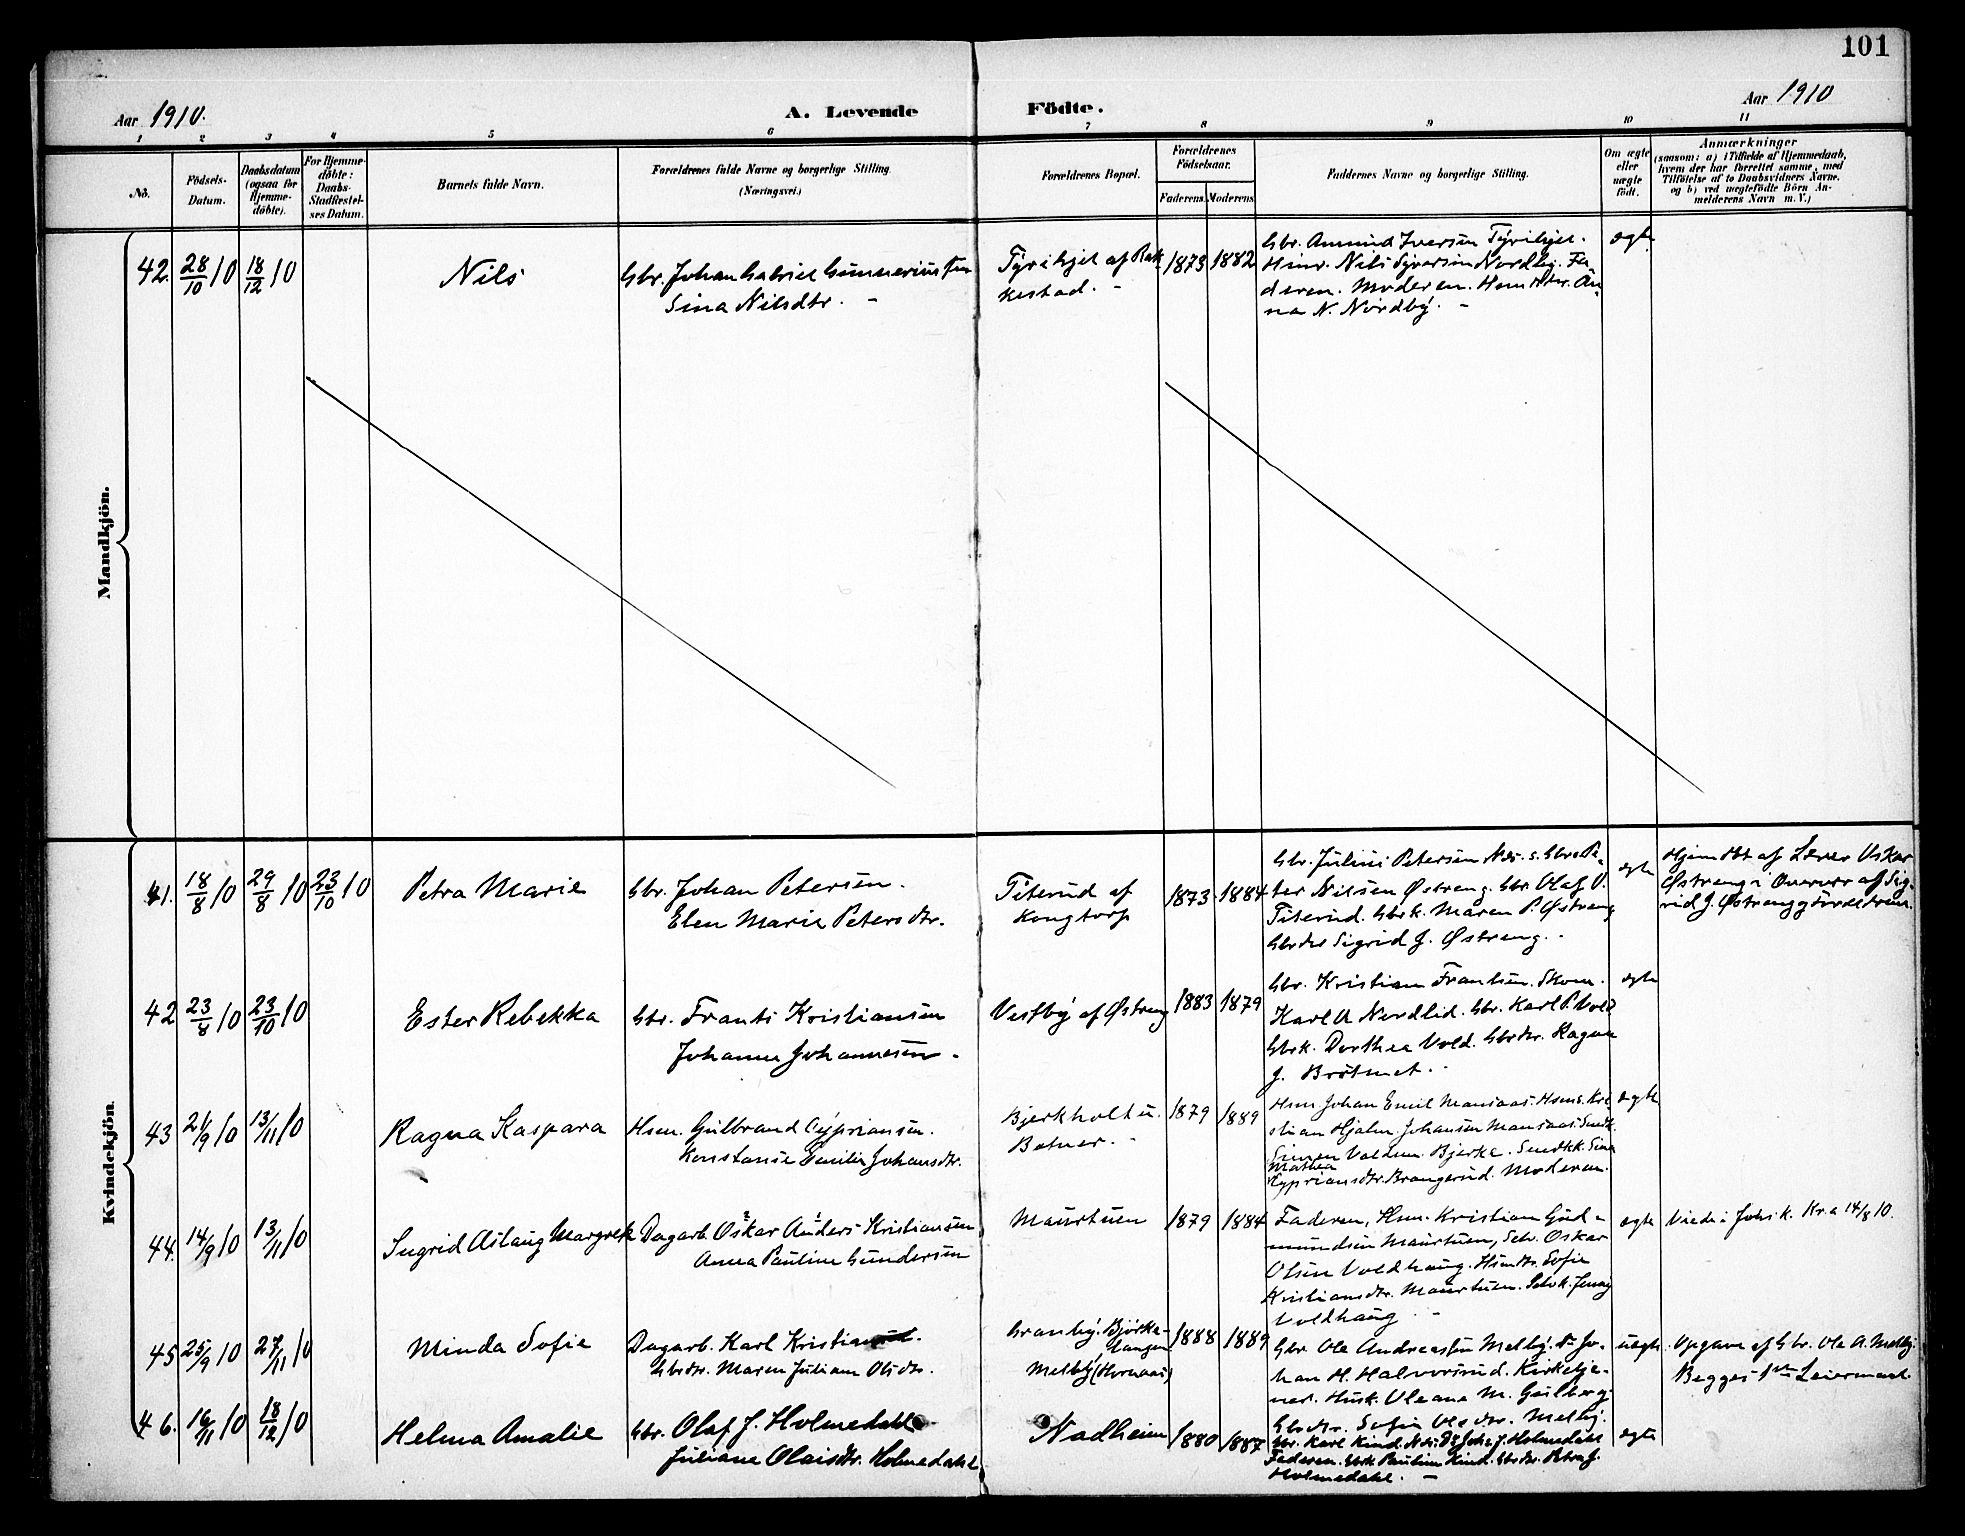 101
Aar 1910.
A. Levende Födte.
Aar 1910
1 2 3 4 5 6 7 8 9 10 11
No.
Födsels-
Datum.
Daabsdatum
(ogsaa for
Hjemme-
döbte).
For Hjemme-
döbte:
Daabs-
Stadfæstel-
ses Datum.
Barnets fulde Navn.
Forældrenes fulde Navne og borgerlige Stilling
(Næringsvei.)
Forældrenes Bopæl.
Forældrenes
Födselsaar.
Faderens. Moderens.
Faddernes Navne og borgerlige Stilling.
Om ægte
eller
uægte
födt.
Anmærkninger
(saasom: a) i Tilfælde af Hjemmedaab,
hvem der har forrettet samme, med
Tilföielse af to Daabsvidners Navne,
og b) ved uægtefödte Börn An-
melderens Navn m. V.)
Mandkjön.
42. 28/10 10 18/12 10
Nils
Gbr. Johan Gabriel Gunnerius
Sina Nilsdtr. -
Tyrihjel af Rak-
kestad. -
1873 1882
Gbr. Amund Iversen Tyrihjel.
Nils Syversen Nordby. Fa-
deren. Moderen. An-
na N. Nordby. -
egte
Kvindekjön.
41. 18/8 10 29/8 10 23/10 10
Petra Marie
Gbr. Johan Petersen.
Elen Marie Petersdtr.
Titerud af
Kongtorp
1873 1884
Gbr. Julius Petersen Næs. s. Gbr. Pe-
ter Nilsen Østreng. Gbr Olaf O.
Titerud. Gbrk. Maren P. Østreng
Gbrdtr Sigrid J. Østreng.
egte
Hjemdbt af Lærer Oskar
Østreng i Overvær af Sig-
rid J. Østreng
42 23/8 10 23/10 10
Ester Rebekka
Gbr. Frants Kristiansen
Johanne Johannesen.
Vestby af Østreng
1883 1879
Gbr. Kristian Frantsen. Skom.
Karl A Nordlid. Gbr. Karl P. Vold
Gbrk. Dorthea Vold. Gbrdtr. Ragna
J. Bråtmet.
egte
43 21/9 10 13/11 10
Ragna Kaspara
Hsm. Gulbrand Cypriansen.
Konstanse Emilie Johansdtr.
Bjerkholt u.
Botner. -
1879 1889
Hsm Johan Emil Mansaas. Hsms. Kri-
stian Hjalm. Johansen Mansaas. Smedk.
Simen Valdem. Bjerke. Smedkk. Sina
Mathea
Cypriansdtr. Brangerud. Moderen.
egte
44. 14/9 10 13/11 10
Ingrid Aslaug Margrete
Dagarb. Oskar Anders Kristiansen
Anna Pauline Gundersen
Maurtuen
1879 1884
Faderen, Hsm. Kristian Gud-
mundsen Maurtuen, Selv. Oskar
Olsen Voldhaug. Hsmdtr. Sofie
Kristiansdtr. Maurtuen. Selvk. Jenny
Voldhaug -
egte
Viede i Johs k. Kr.a 14/8 10.
45 25/9 10 27/11 10
Minda Sofie
Dagarb. Karl Kristiansen.
Gbrdtr. Maren Juliane Olsdtr.
Granby. Bjørke-
langen
Melby (Hornaas)
1888 1889
Gbr Ole Andreassen Melby. Do Jo-
han H. Halvorsrud. Kirketje-
ner. Husk. Oleane M. Gulberg.
Gbrdtr. Sofie Olsdtr. Melby.
uegte
Opgave af Gbr. Ole A. Melby.
Begges 1ste Leiermaal.
46. 16/11 10 18/12 10
Helma Amalie
Gbr. Olaf J. Holmedahl
Juliane Olaisdtr. Holmedahl
Nadheim
1880 1887
Gbr. Karl Kind. Næs. Do Johs J. Holmedahl
Faderen. Gbrk Pauline Kind. Gbrdtr. Petra J.
Holmedahl. -
egte